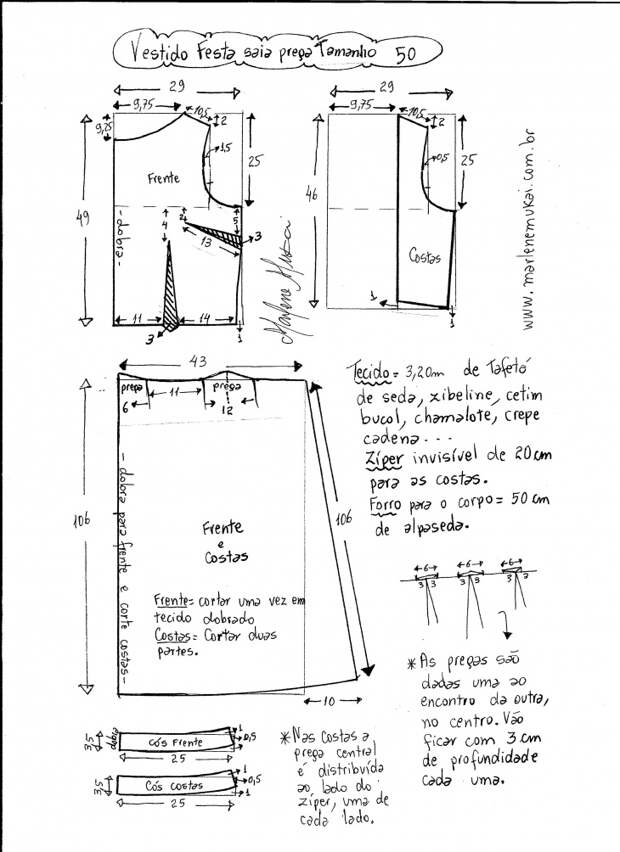 Vestido Festa saia prega Tamanho 50
29
9,75
10,5
2
9,25
1,5
25
Frente
49
-dobra-
4
2
5
13
3
11
14
3
1
Marlene Mukai
29
9,75
10,5
2
0,5
25
46
Costas
1
1
www.marlenemukai.com.br
43
prega
6
11
prega
12
106
106
-dobra para frente e corte costas-
Frente
e
Costas
Frente= cortar uma vez em
tecido dobrado
Costas= Cortar duas
partes.
10
Tecido= 3,20m de Tafetá
de seda, xibeline, cetim
bucol, chamalote, crepe
cadena...
Zíper invisível de 20cm
para as costas.
Forro para o corpo= 50 cm
de alpaseda.
6
6
6
3 3
3 3
3 3
*As pregas são
dadas uma ao
encontro da outra,
no centro. Vão
ficar com 3 cm
de profundidade
cada uma.
dobra
3,5
Cós Frente
1
0,5
1
25
3,5
Cós costas
1
0,5
1
25
*Nas Costas a
prega central
é distribuída
ao lado do
zíper, uma de
cada lado.